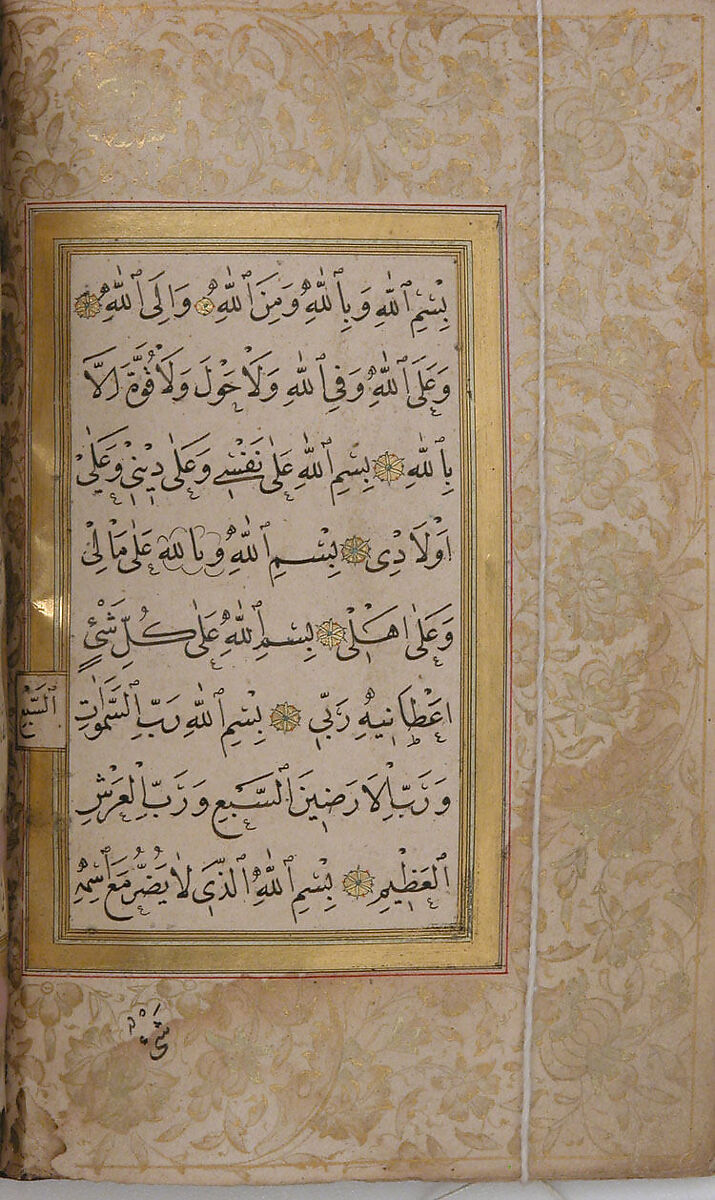 بِسْمِ ٱللّٰهِ وَبِٱللّٰهِ وَمِنَ ٱللّٰهِ وَاِلَى ٱللّٰهِ
وَعَلَى ٱللّٰهِ وَفِى ٱللّٰهِ وَلَاْ حَوْلَ وَلَاْ قُوَّةَ اِلَّا
بِٱللّٰهِ بِسْمِ ٱللّٰهِ عَلٰى نَفْسِى وَعَلٰى دِيْنِىْ وَعَلٰىْ
اَوْلَادِى بِسْمِ ٱللّٰهِ وَبِاللّٰهِ عَلٰى مَاْلِىْ
وَعَلٰى اَهْلِىْ بِسْمِ ٱللّٰهِ عَلٰى كُلِّ شَىْءٍ
اَعْطَانِيهِ رَبِّى بِسْمِ ٱللّٰهِ رَبِّ ٱلسَّمٰوَاتِ
ٱلسَّبْعِ
وَرَبِّ اْلاَرَضِينَ ٱلسَّبْعِ وَرَبِّ اْلعَرْشِ
ٱلعَظِيْمِ بِسْمِ ٱللّٰهِ ٱلَّذِى لاٰ يَضُرُّ مَعَ ٱسْمِهِ
شَىْءٌ